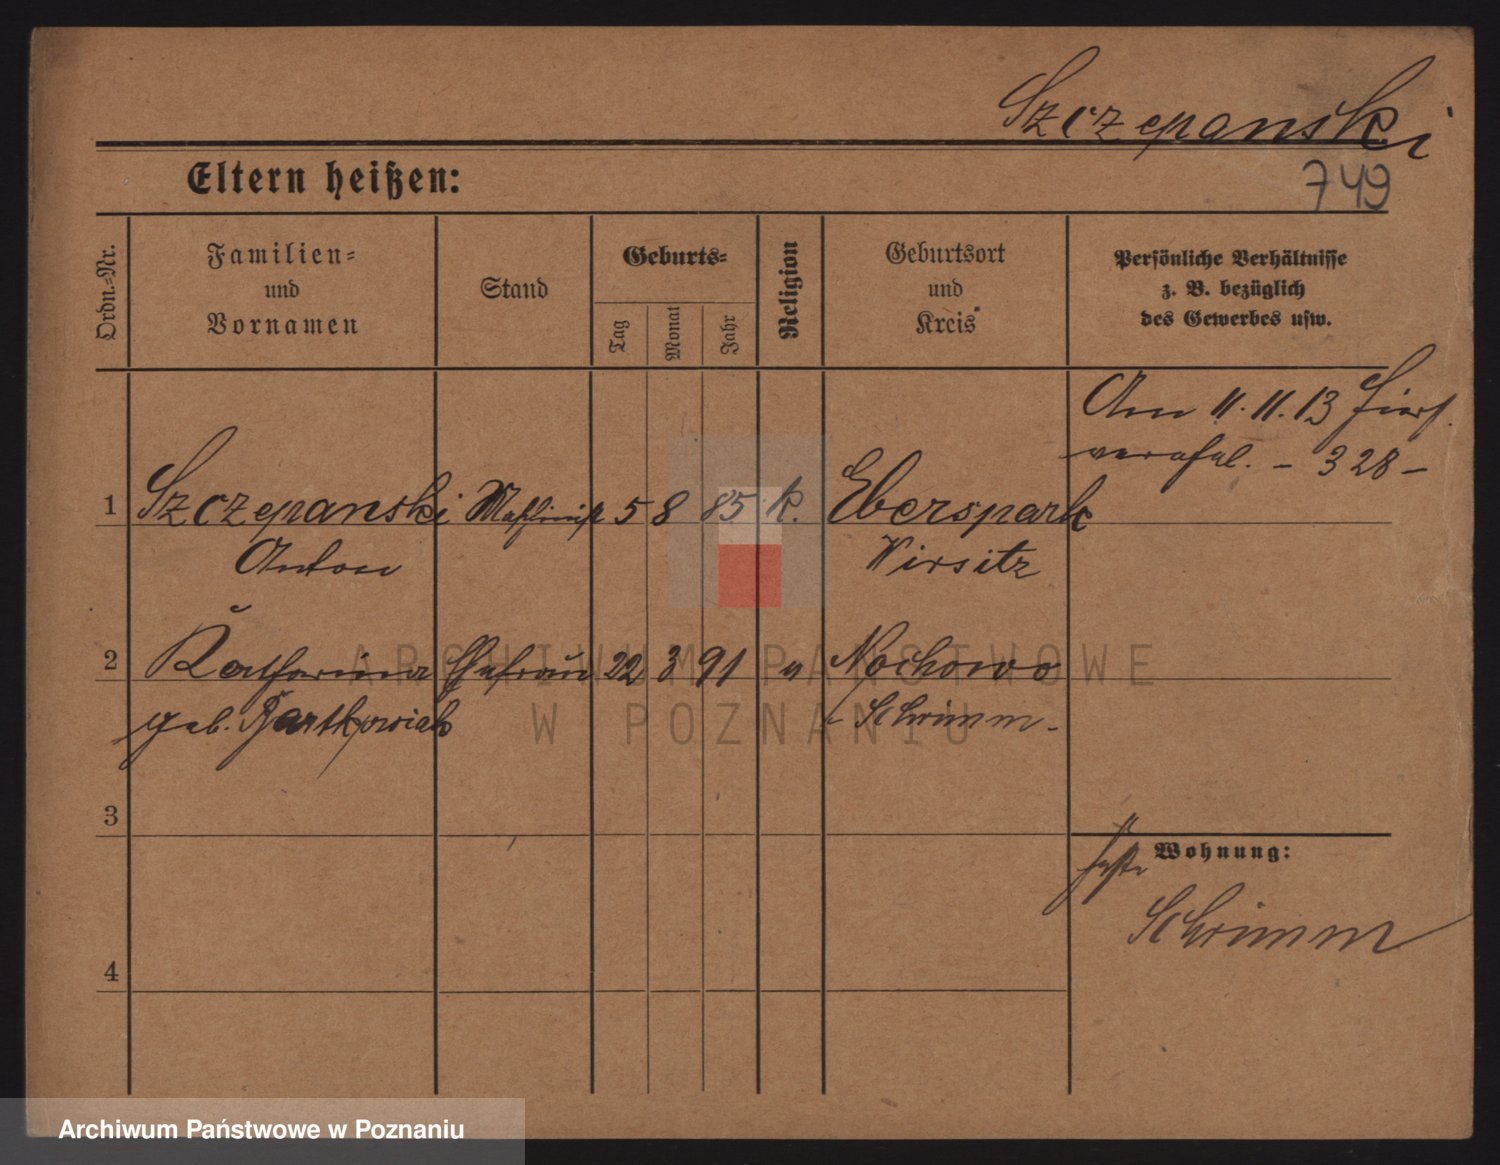 Szczepanski
Eltern heißen:
749
Ordn.-Nr.
Familien-
und
Vornamen
Stand
Geburts-
Tag
Monat
Jahr
Religion
Geburtsort
und
Kreis
Persönliche Verhältnisse
z. B. bezüglich
des Gewerbes usw.
Am 11. 11. 13
- 328 -
1 Szczepanski Maschinist 5 8 85 k. Eberspark
Anton Wirsitz
2 Katharina Ehefrau 22 3 91 " Nochowo
geb. Bartkowiak - Schrimm -
3
Wohnung:
Schrimm
4
ARCHIWUM PAŃSTWOWE
W POZNANIU
Archiwum Państwowe w Poznaniu